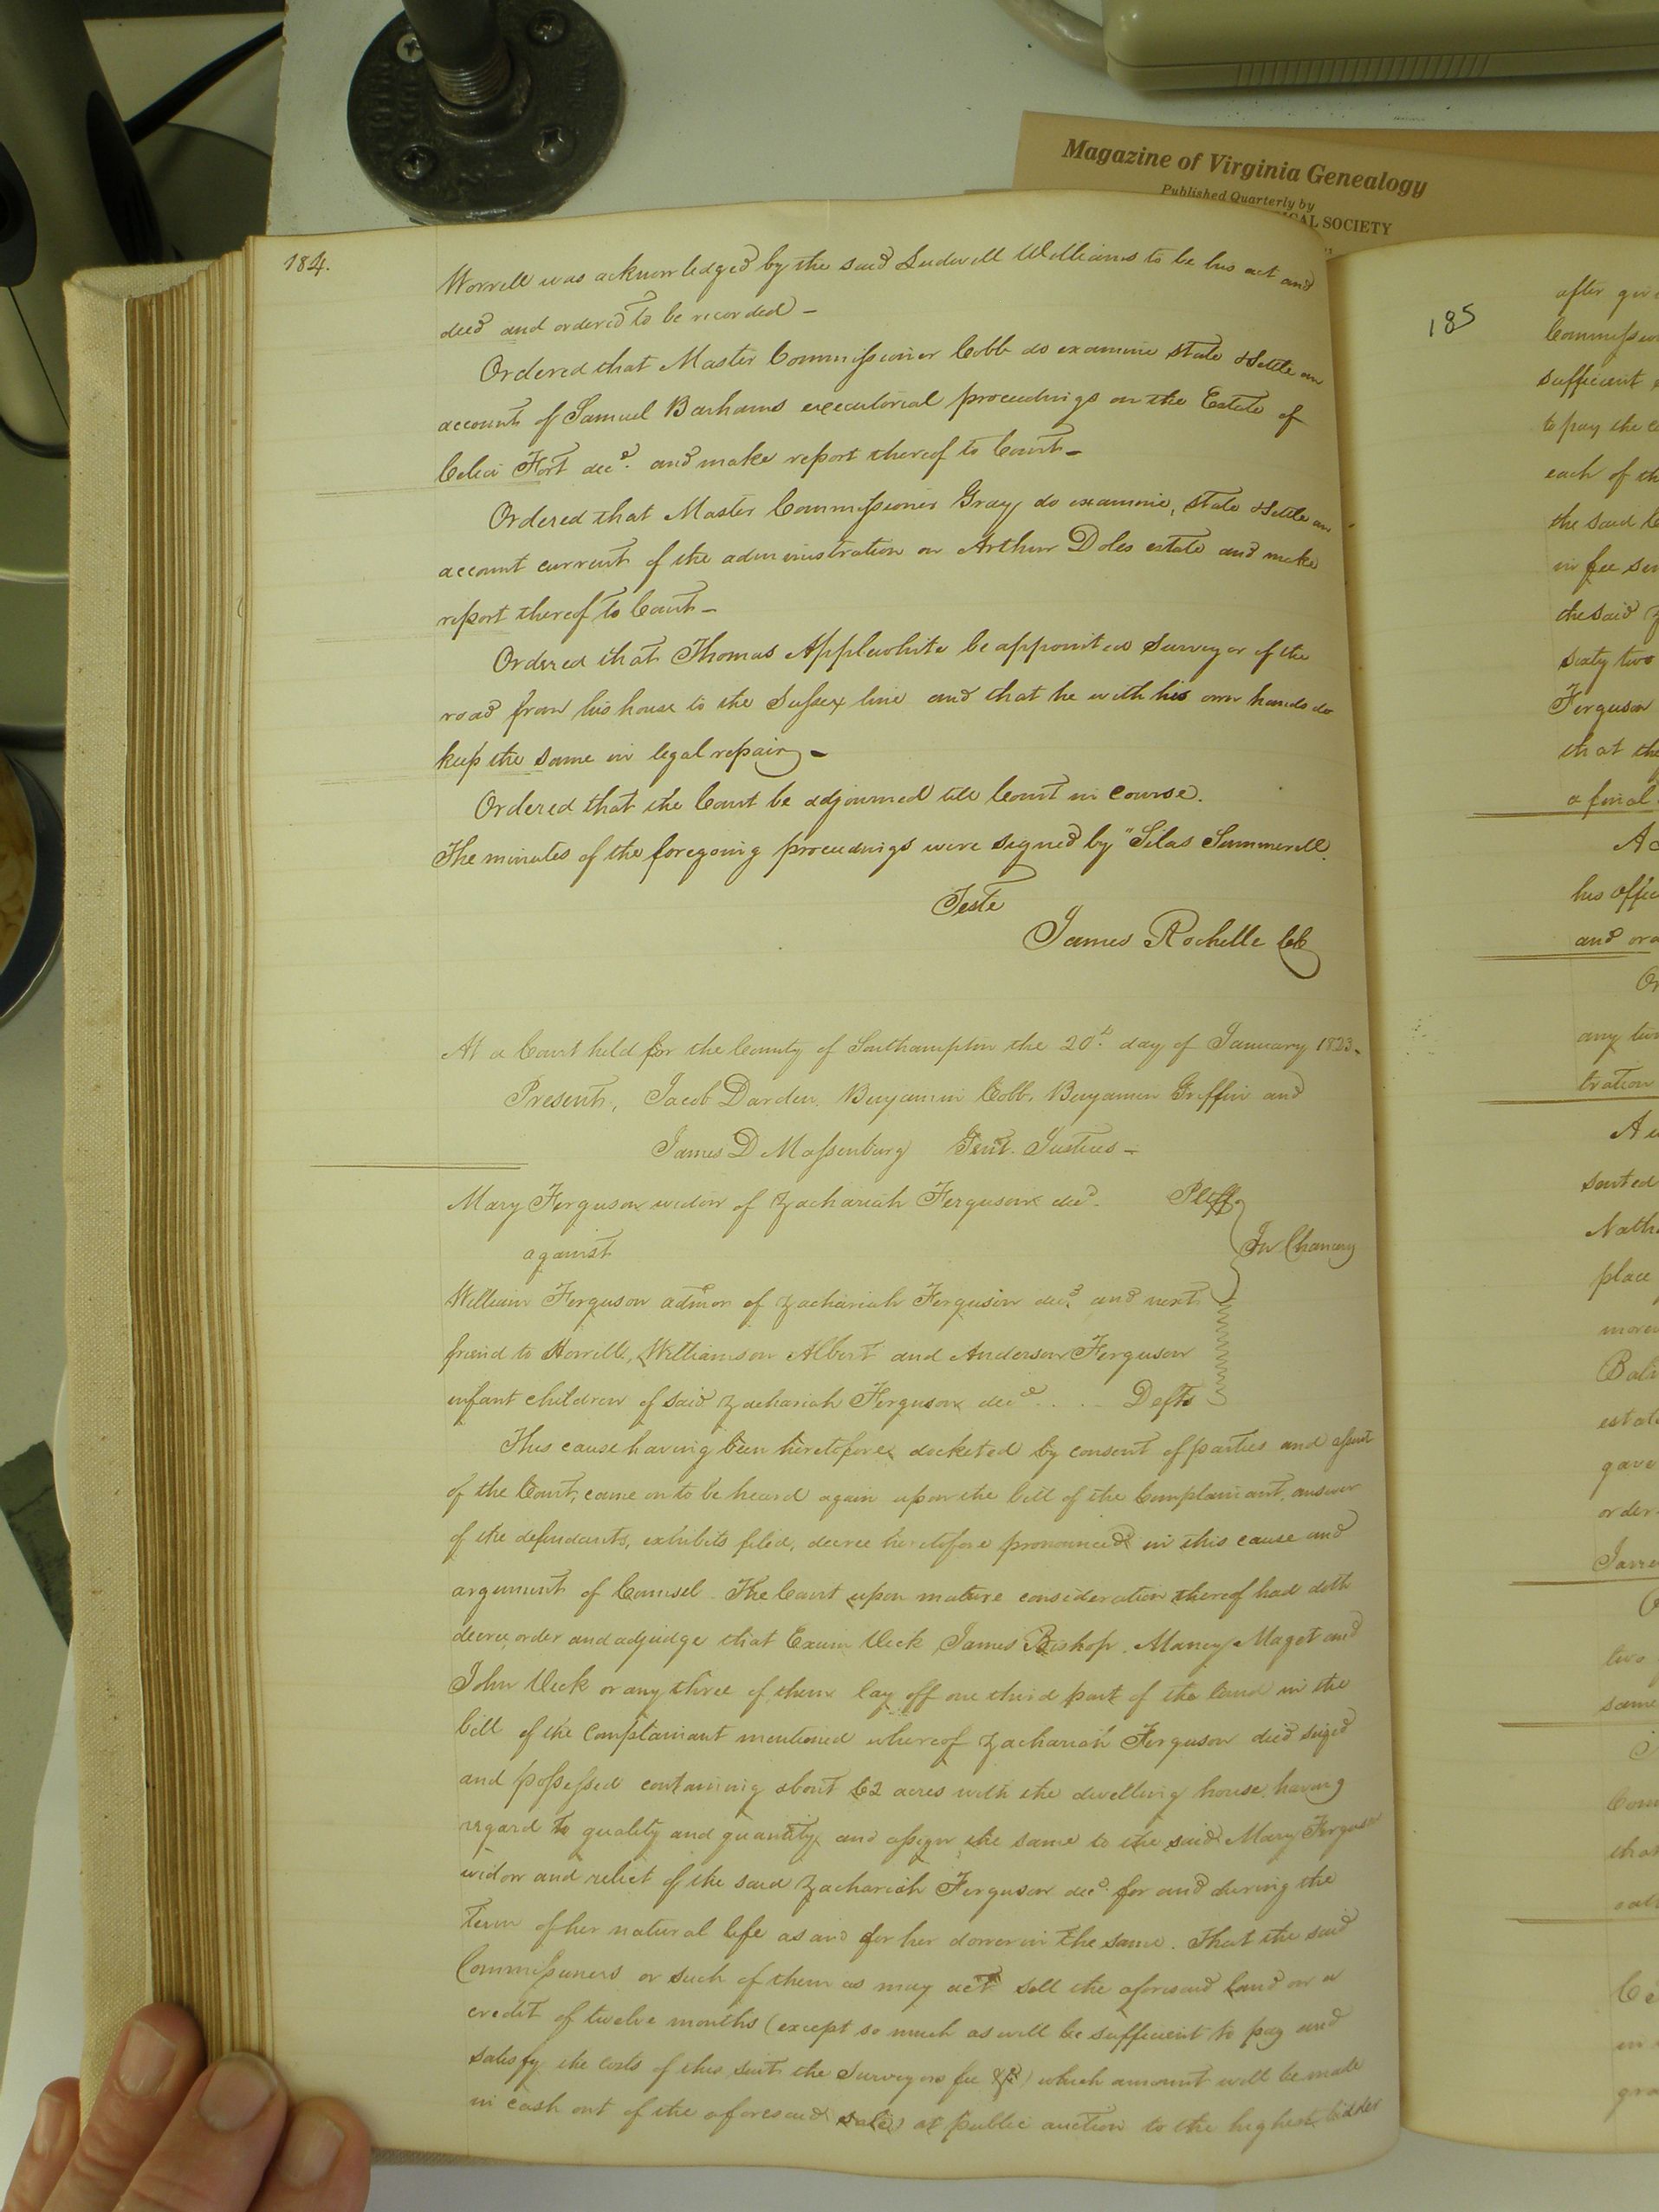 Magazine of Virginia Genealogy
Published Quarterly by
ICAL SOCIETY
184.
Worrell was acknowledged by the said Ludwell Williams to be his act and
deed and ordered to be recorded -
Ordered that Master Commissioner Cobb do examine state & settle an
account of Samuel Barhams executorial proceedings on the Estate of
Celia Fort decd. and make report thereof to Court -
Ordered that Master Commissioner Gray do examine, state & settle an
account current of the administration on Arthur Doles estate and make
report thereof to Court -
Ordered that Thomas Applewhite be appointed surveyor of the
road from his house to the Sussex line and that he with his own hands do
keep the same in legal repair -
Ordered that the Court be adjourned till Court in Course.
The minutes of the foregoing proceedings were signed by "Silas Summerell.
Teste
James Rochelle
At a Court held for the County of Southampton the 20th. day of January 1823 -
Present, Jacob Darden, Benjamin Cobb, Benjamin Griffin and
James D Massenburg Gent. Justices -
Mary Ferguson widow of Zachariah Ferguson decd. Pltff
against
In Chancery
William Ferguson admor of Zachariah Ferguson decd. and next
friend to Williamson Albert and Anderson Ferguson
infant children of said Zachariah Ferguson decd. . . . Defts
This cause having been heretofore docketed by consent of parties and assent
of the Court, came on to be heard again upon the bill of the Complainant, answer
of the defendants, exhibits filed, decree heretofore pronounced in this cause and
argument of Counsel. The Court upon mature consideration thereof had doth
decree order and adjudge that Exum Vick James Bishop. Maget and
John Vick or any three of them lay off one third part of the land in the
bill of the Complainant mentioned whereof Zachariah Ferguson died seized
and possessed containing about 62 acres with the dwelling house, having
regard to quality and quantity and assign the same to the said Mary Ferguson
widow and relict of the said Zachariah Ferguson decd. for and during the
term of her natural life as and for her dower in the same. That the said
Commissioners or such of them as may act sell the aforesaid land on a
credit of twelve months (except so much as will be sufficient to pay and
satisfy the costs of this suit the surveyors fee &c) which amount will be made
in cash out of the aforesaid sale) at public auction to the highest bidder
185
after
sufficient
to pay the
each of
the said
in fee
the said
sixty two
Ferguson
that the
a final
his
and
any
tration
sented
place
gave
order
two
same